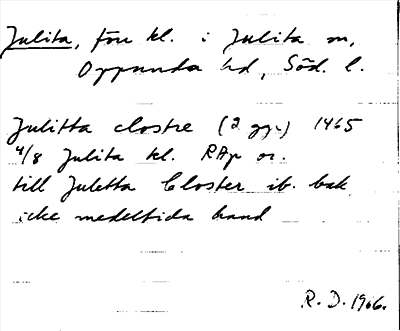 Julita, förr kl. i Julita sn,
Oppunda hd, Söd. l.
Julitta clostre (2 ggr) 1465
4/8 Julita kl. RAp or.
till Juletta Closter ib. bak
icke medeltida hand
R. D. 1966.